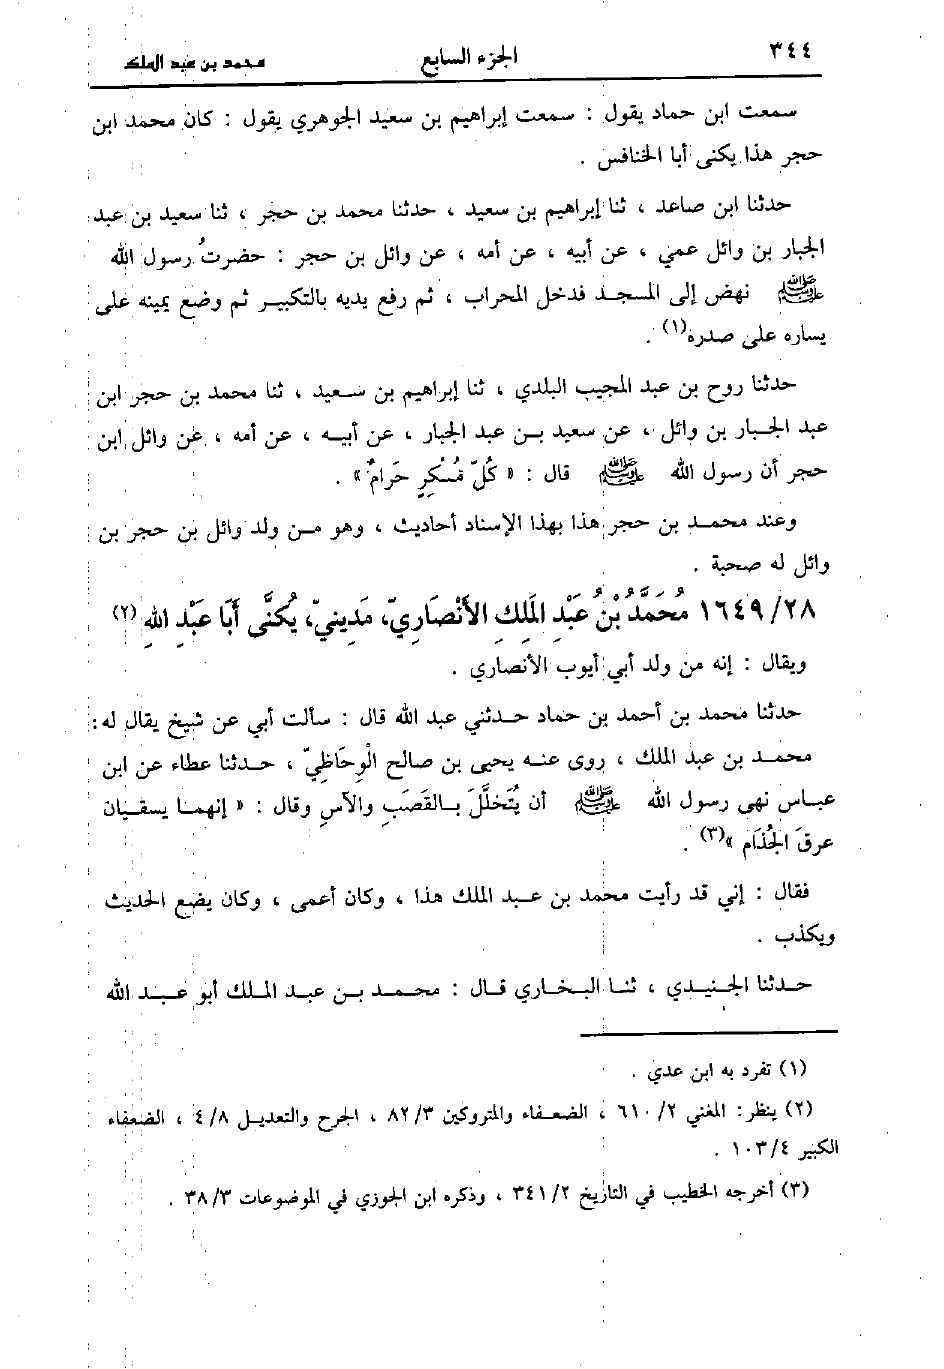 ٣٤٤ الجزء السابع محمد بن عبد الملك
سمعت ابن حماد يقول : سمعت إبراهيم بن سعيد الجوهري يقول : كان محمد ابن
حجر هذا يكنى أبا الخنافس .
حدثنا ابن صاعد ، ثنا إبراهيم بن سعيد ، حدثنا محمد بن حجر ، ثنا سعيد بن عبد
الجبار بن وائل عمي ، عن أبيه ، عن أمه ، عن وائل بن حجر : حضرتُ رسول الله
ﷺ نهض إلى المسجد فدخل المحراب ، ثم رفع يديه بالتكبير ثم وضع يمينه على
يساره على صدره(١) .
حدثنا روح بن عبد المجيب البلدي ، ثنا إبراهيم بن سعيد ، ثنا محمد بن حجر ابن
عبد الجبار بن وائل ، عن سعيد بن عبد الجبار ، عن أبيه ، عن أمه ، عن وائل ابن
حجر أن رسول الله ﷺ قال : « كُلّ مُسْكِرٍ حَرامٌ » .
وعند محمد بن حجر هذا بهذا الإسناد أحاديث ، وهو من ولد وائل بن حجر بن
وائل له صحبة .
١٦٤٩/٢٨ مُحَمَّدُ بْنُ عَبْدِ المَلِكِ الأَنْصَارِيّ، مَدِينيّ، يُكنَّى أَبَا عَبْدِ اللهِ (٢)
ويقال : إنه من ولد أبي أيوب الأنصاري .
حدثنا محمد بن أحمد بن حماد حدثني عبد الله قال : سألت أبي عن شيخ يقال له :
محمد بن عبد الملك ، روى عنه يحيى بن صالح الْوِحَاظِيّ ، حدثنا عطاء عن ابن
عباس نهى رسول الله ﷺ أن يُتَخلَّلَ بالقَصَبِ والآسِ وقال : « إنهما يسقيان
عرقَ الجُذَام »(٣) .
فقال : إني قد رأيت محمد بن عبد الملك هذا ، وكان أعمى ، وكان يضع الحديث
ويكذب .
حدثنا الجنيدي ، ثنا البخاري قال : محمد بن عبد الملك أبو عبد الله
(١) تفرد به ابن عدي .
(٢) ينظر : المغني ٦١٠/٢ ، الضعفاء والمتروكين ٨٢/٣ ، الجرح والتعديل ٤/٨ ، الضعفاء
الكبير ١٠٣/٤ .
(٣) أخرجه الخطيب في التاريخ ٣٤١/٢ ، وذكره ابن الجوزي في الموضوعات ٣٨/٣ .